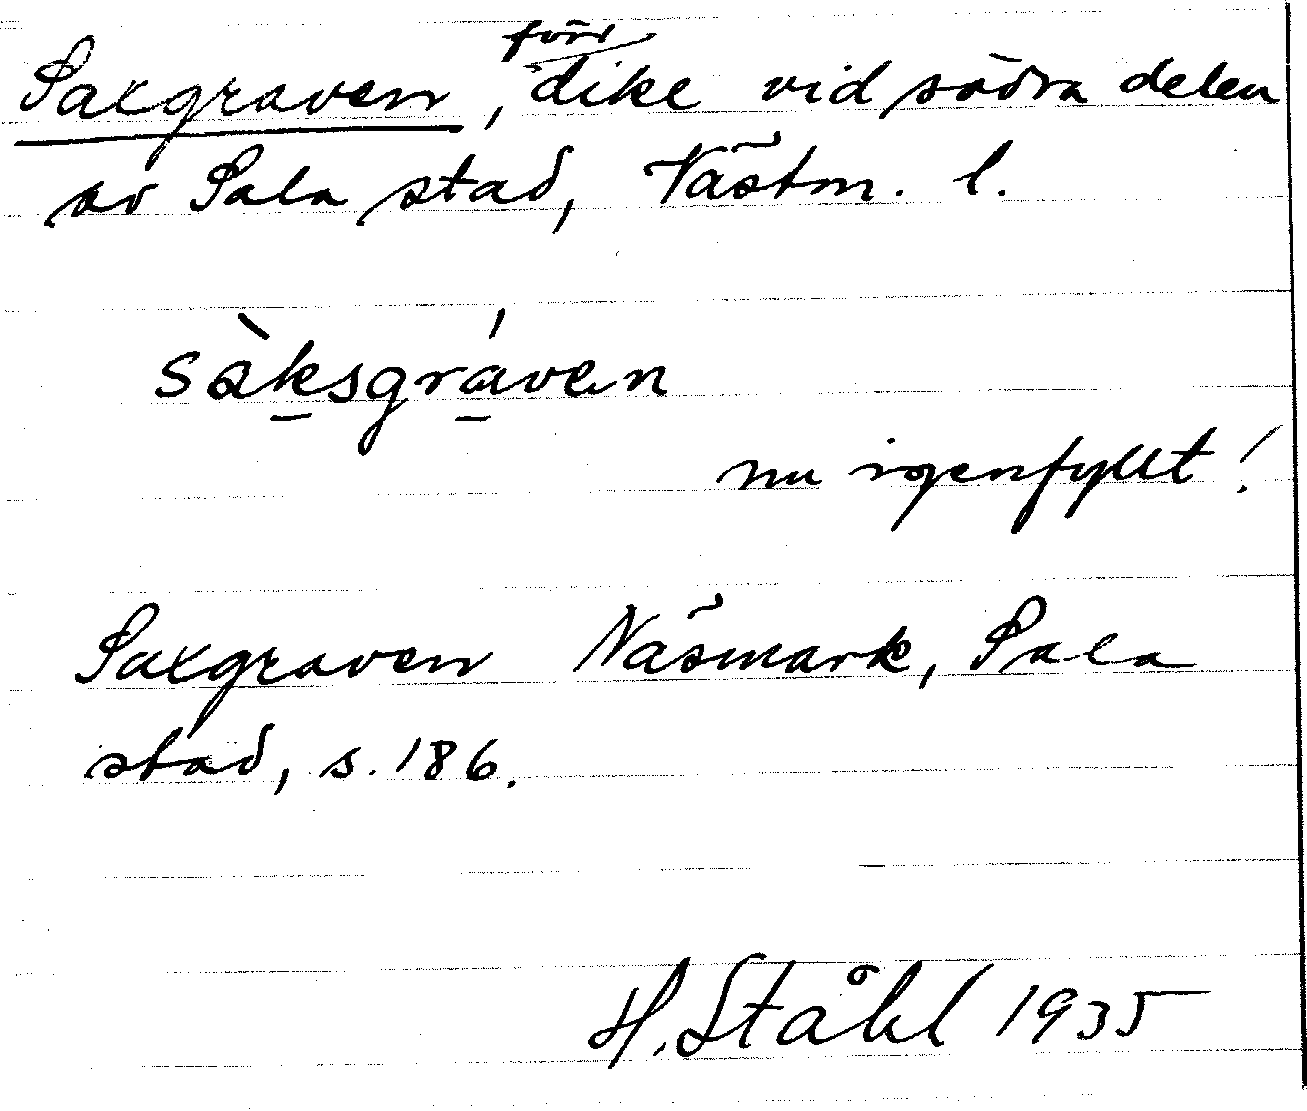 Saxgraven, förr dike vid södra delen
av Sala stad, Västm. l.
sàksgráven
nu igenfyllt!
Saxgraven Näsmark, Sala
stad, s. 186.
H. Ståhl 1935